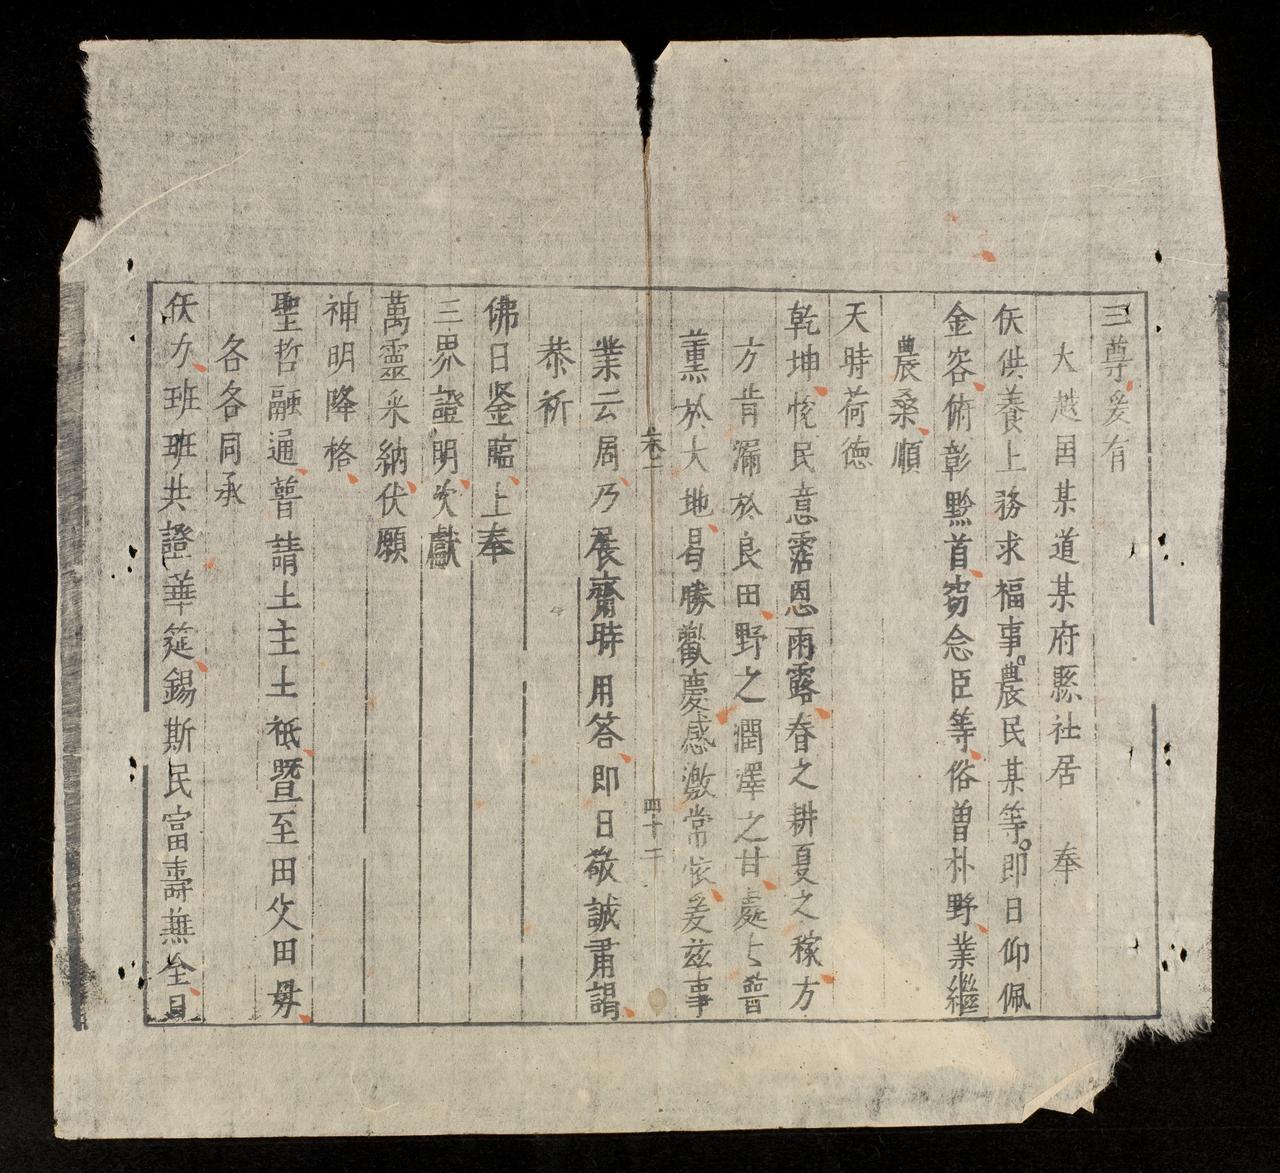 三尊爰有
大越国某道某府縣社居 奉
仸供養上務求福事農民某等即日仰佩
金容俯彰黔首窃念臣等俗曽朴野業繼
農桑順
天時荷德
乾坤悦民意霑恩雨露春之耕夏之稼方
方肯漏於良田野之潤澤之甘處上普
薫於大地曷勝歡慶感激常依爰兹事
卷二 四十二
業云周乃展齋時用答即日敬誠肅謁
恭祈
佛日鉴臨上奉
三界證明次獻
萬靈采納伏願
神明降格
聖哲融通普請土主土祇暨至田父田母
各各同承
仸力班班共證華筵錫斯民富壽兼全具